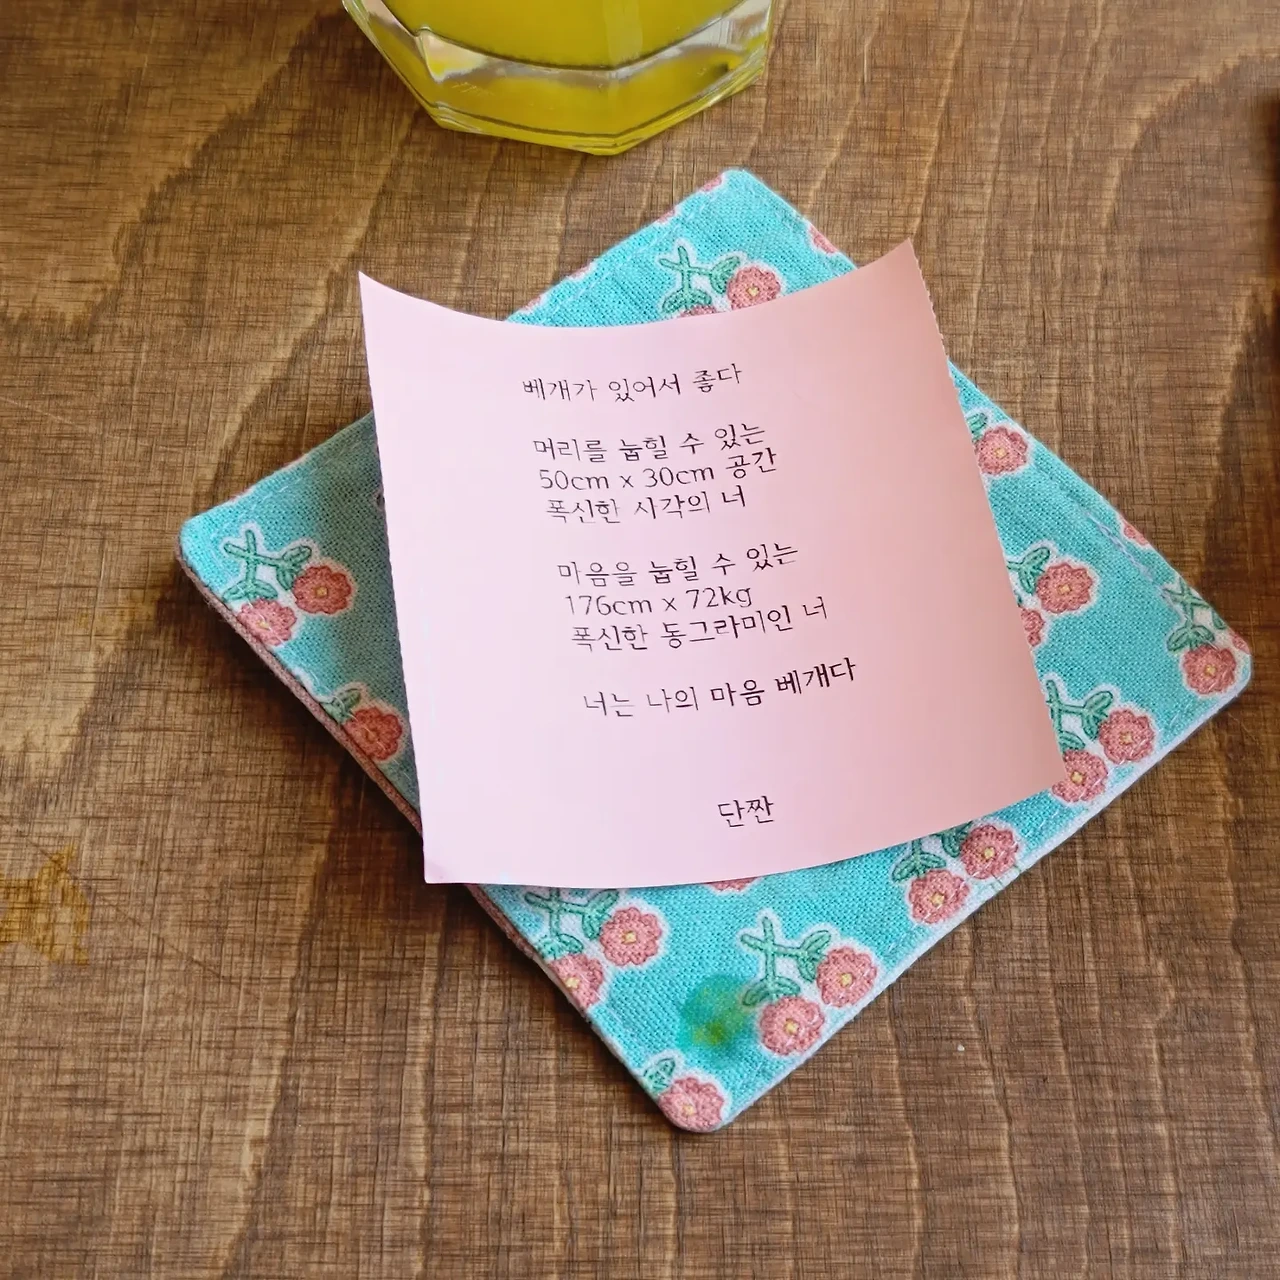 베개가 있어서 좋다
머리를 눕힐 수 있는
50cm x 30cm 공간
폭신한 사각의 너
마음을 눕힐 수 있는
176cm x 72kg
폭신한 동그라미인 너
너는 나의 마음 베개다
단짠